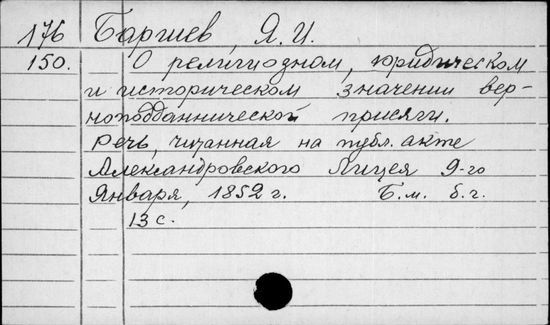 176 Баршев, Я. И.
150. О религиозном, юридическом
и историческом значении вер-
ноподданнической присяги.
Речь, читанная на публ. акте
Александровского Лицея 9-го
Января, 1852 г. Б. м. б. г.
13 с.